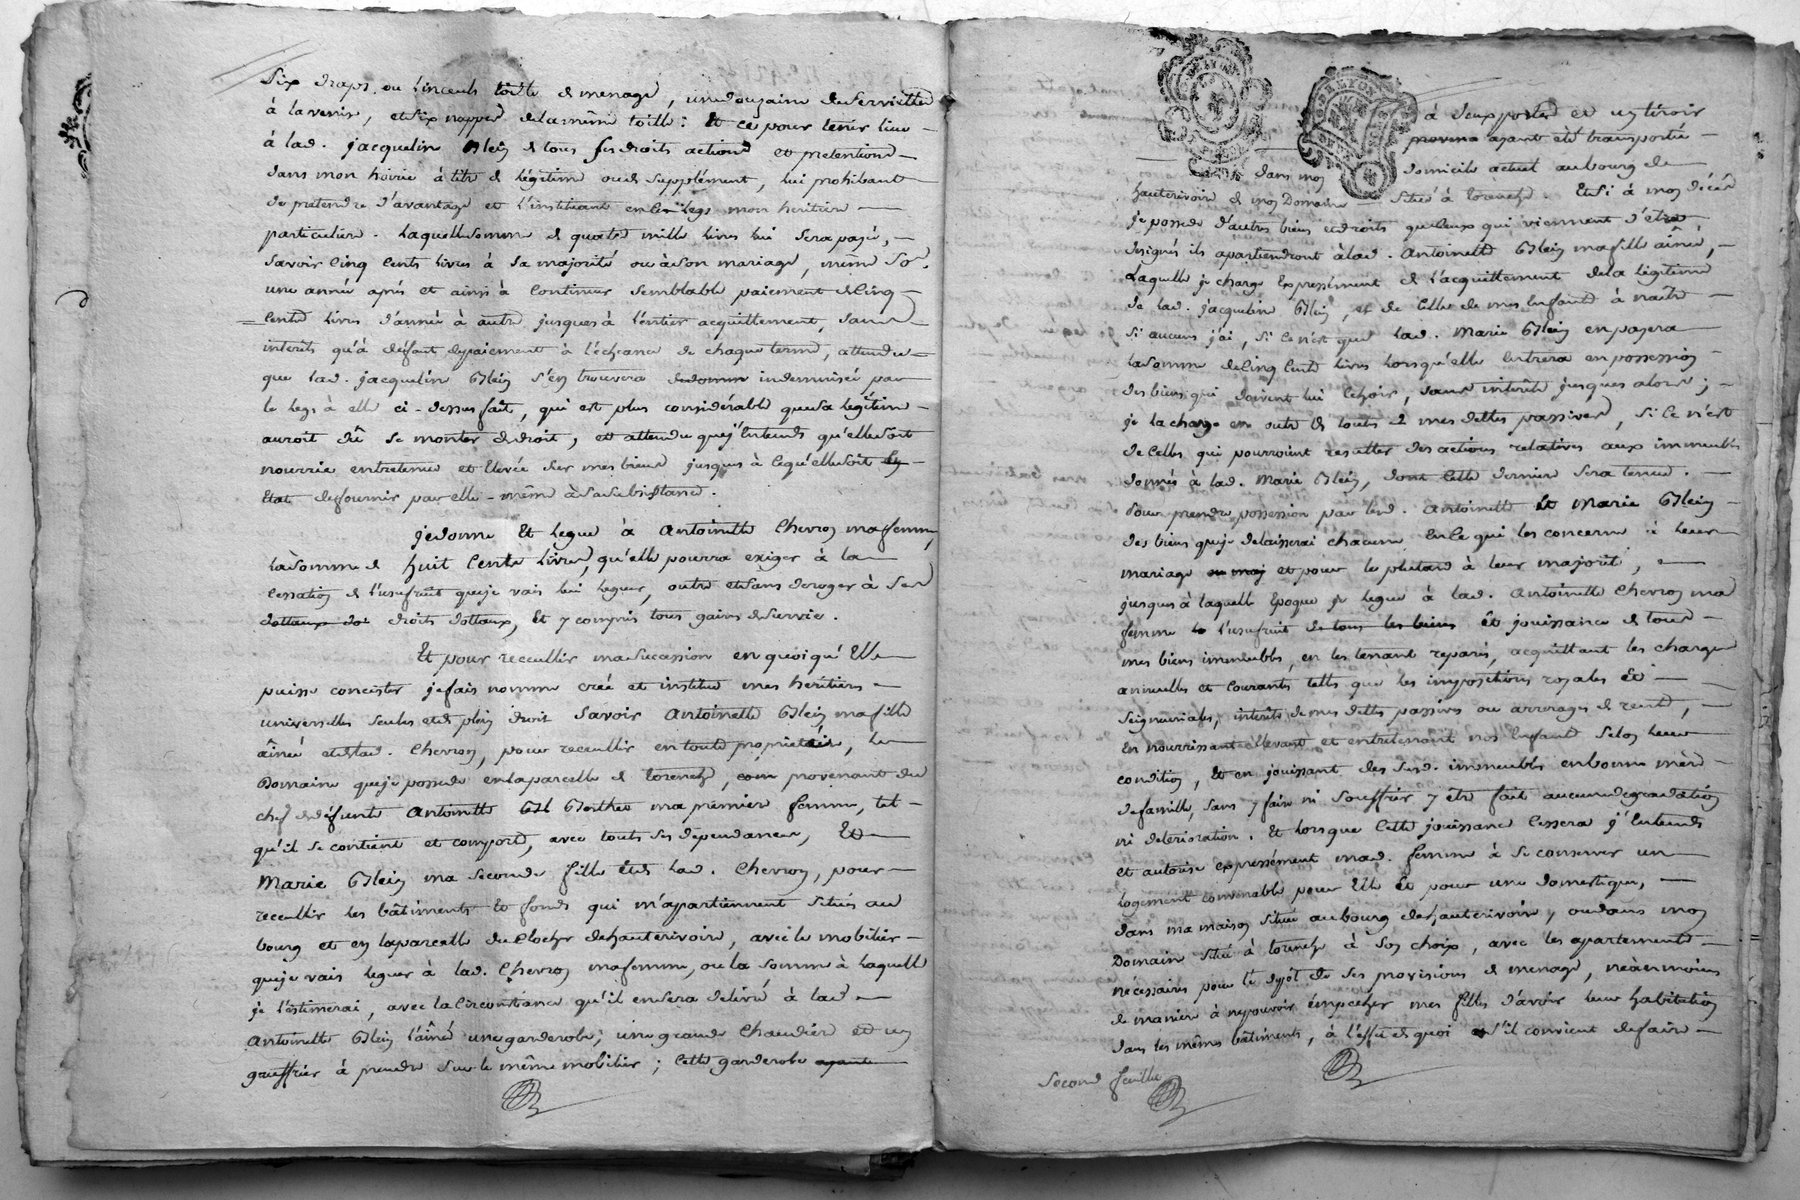 Six draps ou linceuls toille de menage, une douzaine de serviette
à la venise, et six nappes de la même toille : Et ce pour tenir lieu
à lad. jacqueline Blein de tous ses droits actions et pretentions
dans mon hoirie à titre de légitime ou de supplément, lui prohibant
de pretendre d'avantage et l'instituant en ce legs mon heritiere
particuliere. laquelle somme de quatre mille livres lui sera payé,
savoir cinq cents livres à sa majorité ou à son mariage, même so.
une année aprés et ainsi à continuer semblable paiement de cinq
cents livres d'année à autre jusques à l'entier acquittement, sans
interets qu'à défaut de paiement à l'écheance de chaque terme, attendu
que lad. jacqueline Blein s'en trouvera indemnisée par
le legs à elle ci-dessus fait, qui est plus considérable que sa légitime
auroit dû se monter de droit, et attendu que j'entends qu'elle soit
nourrie entretenue et élevée sur mes biens jusques à ce qu'elle soit en
état de fournir par elle-même à sa subsistance.
je donne Et legue à Antoinette Chevron ma femme,
la somme de huit cents livres, qu'elle pourra exiger à la
cessation de l'usufruit que je vais lui leguer, outre et sans deroger à ses
dottaux do droits dottaux, Et y compris tous gains de survie.
Et pour receullir ma succession en quoi qu'Elle
puisse concister je fais nomme crée et institue mes heritieres
universelles seules et de plein droit savoir Antoinette Blein ma fille
aînée et de lad. Chevron, pour receullir en toute propriétée, le
Domaine que je possede en la parcelle de torenche, provenant du
chef de défunte Antoinette Berthet ma premiere femme, tel
qu'il se contient et comporte, avec touts ses dépendances, Et
Marie Blein ma seconde fille Et de lad. Chevron, pour
receullir les bâtiments et fonds qui m'apartiennent situés au
bourg et en la parcelle du clocher de hauterivoire, avec le mobilier
que je vais leguer à lad. Chevron ma femme, ou la somme à laquelle
je l'estimerai, avec la circonstance qu'il en sera delivré à lad
Antoinette Blein l'aîné une garderobe, une grande chaudiere et un
gauffrier à prendre sur le même mobilier ; cette garderobe ayante
à deux portes et un tiroir
ayant été transportée
dans mon domicile actuel au bourg de
hauterivoire de mon Domaine situé à torenche. Et si à mon décés
je possede d'autres biens et droits que ceux qui viennent d'etre
designés ils apartiendront à lad. Antoinette Blein ma fille aînée,
laquelle je charge expressément de l'acquittement de la légitime
de lad. jacqueline Blein, et de celle de mes enfants à naître
si aucuns j'ai, si ce n'est que lad. Marie Blein en payera
la somme de cinq cents livres lorsqu'elle entrera en possession
des biens qui doivent lui echoir, sans interêts jusques alors ;
je la charge en outre de toutes mes dettes passives, si ce n'est
de celles qui pourroient resulter des actions relatives aux immeubles
donnés à lad. Marie Blein, dont cette derniere sera tenue.
Pour prendre possession par lesd. Antoinette Et Marie Blein
des biens que je delaisserai chacune en ce qui les concerne à leur
mariage ou moj et pour le plutard à leur majorité,
jusques à laquelle époque je legue à lad. Antoinette Chevron ma
femme l'usufruit de tous les biens et jouissance de tous
mes biens immeubles, en les tenant reparés, acquittant les charges
annuelles et courantes telles que les impositions royales et
seigneuriales, interêts de mes dettes passives ou arrerages de rente,
en nourrissant ellevant et entretenant nos enfants selon leur
condition, Et en jouissant des susd. immeubles en bonne mère
de famille, sans y faire ni souffrir y être fait aucune degradation
ni deterioration. Et lorsque cette jouissance cessera j'entends
et autorise expressément mad. femme à se conserver un
logement convenable pour Elle Et pour une domestique,
dans ma maison située au bourg de hauterivoire, ou dans mon
Domaine situé à torenche à son choix, avec les apartements
nécessaires pour le dépôt de ses provisions de menage, néanmoins
de maniere à ne pouvoir émpecher mes filles d'avoir leur habitation
dans les mêmes bâtiments, à l'effet de quoi s'il convient de faire
Second feuille